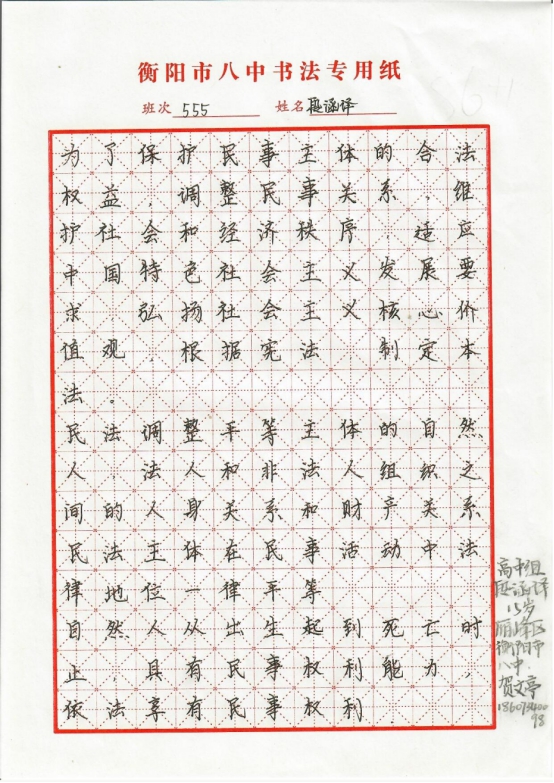 衡阳市八中书法专用纸
班次 555 姓名 涵译
为了保护民事主体的合法
权益，调整民事关系，维
护社会和经济秩序，适应
中国特色社会主义发展要
求，弘扬社会主义核心价
值观，根据宪法，制定本
法。
民法调整平等主体的自然
人、法人和非法人组织之
间的人身关系和财产关系
民法主体在民事活动中法
律地位一律平等
自然人从出生起到死亡时
止，具有民事权利能力，
依法享有民事权利
高中组
涵译
15岁
衡阳市
八中
贺文亭